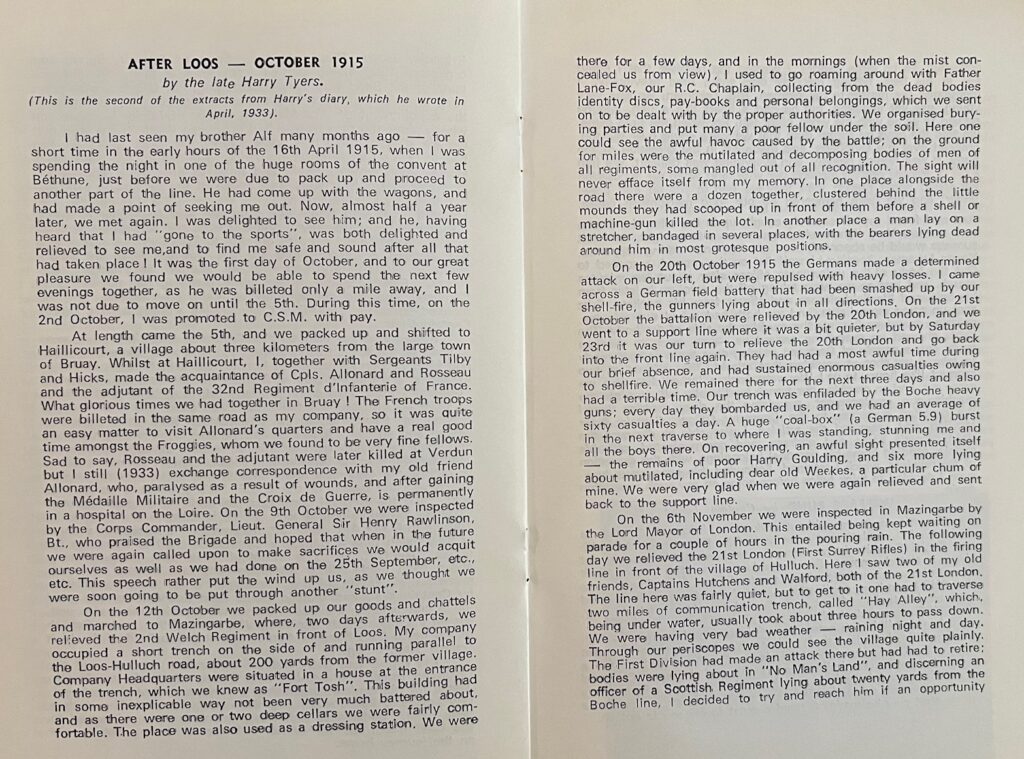 AFTER LOOS — OCTOBER 1915
by the late Harry Tyers.
(This is the second of the extracts from Harry's diary, which he wrote in
April, 1933).
I had last seen my brother Alf many months ago — for a
short time in the early hours of the 16th April 1915, when I was
spending the night in one of the huge rooms of the convent at
Béthune, just before we were due to pack up and proceed to
another part of the line. He had come up with the wagons, and
had made a point of seeking me out. Now, almost half a year
later, we met again. I was delighted to see him; and he, having
heard that I had "gone to the sports", was both delighted and
relieved to see me,and to find me safe and sound after all that
had taken place! It was the first day of October, and to our great
pleasure we found we would be able to spend the next few
evenings together, as he was billeted only a mile away, and I
was not due to move on until the 5th. During this time, on the
2nd October, I was promoted to C.S.M. with pay.
At length came the 5th, and we packed up and shifted to
Haillicourt, a village about three kilometers from the large town
of Bruay. Whilst at Haillicourt, I, together with Sergeants Tilby
and Hicks, made the acquaintance of Cpls. Allonard and Rosseau
and the adjutant of the 32nd Regiment d'Infanterie of France.
What glorious times we had together in Bruay! The French troops
were billeted in the same road as my company, so it was quite
an easy matter to visit Allonard's quarters and have a real good
time amongst the Froggies, whom we found to be very fine fellows.
Sad to say, Rosseau and the adjutant were later killed at Verdun
but I still (1933) exchange correspondence with my old friend
Allonard, who, paralysed as a result of wounds, and after gaining
the Médaille Militaire and the Croix de Guerre, is permanently
in a hospital on the Loire. On the 9th October we were inspected
by the Corps Commander, Lieut. General Sir Henry Rawlinson,
Bt., who praised the Brigade and hoped that when in the future
we were again called upon to make sacrifices we would acquit
ourselves as well as we had done on the 25th September, etc.,
etc. This speech rather put the wind up us, as we thought we
were soon going to be put through another "stunt".
On the 12th October we packed up our goods and chattels
and marched to Mazingarbe, where, two days afterwards, we
relieved the 2nd Welch Regiment in front of Loos. My company
occupied a short trench on the side of and running parallel to
the Loos-Hulluch road, about 200 yards from the former village.
Company Headquarters were situated in a house at the entrance
of the trench, which we knew as "Fort Tosh". This building had
in some inexplicable way not been very much battered about,
and as there were one or two deep cellars we were fairly com-
fortable. The place was also used as a dressing station. We were
there for a few days, and in the mornings (when the mist con-
cealed us from view), I used to go roaming around with Father
Lane-Fox, our R.C. Chaplain, collecting from the dead bodies
identity discs, pay-books and personal belongings, which we sent
on to be dealt with by the proper authorities. We organised bury-
ing parties and put many a poor fellow under the soil. Here one
could see the awful havoc caused by the battle; on the ground
for miles were the mutilated and decomposing bodies of men of
all regiments, some mangled out of all recognition. The sight will
never efface itself from my memory. In one place alongside the
road there were a dozen together, clustered behind the little
mounds they had scooped up in front of them before a shell or
machine-gun killed the lot. In another place a man lay on a
stretcher, bandaged in several places, with the bearers lying dead
around him in most grotesque positions.
On the 20th October 1915 the Germans made a determined
attack on our left, but were repulsed with heavy losses. I came
across a German field battery that had been smashed up by our
shell-fire, the gunners lying about in all directions. On the 21st
October the battalion were relieved by the 20th London, and we
went to a support line where it was a bit quieter, but by Saturday
23rd it was our turn to relieve the 20th London and go back
into the front line again. They had had a most awful time during
our brief absence, and had sustained enormous casualties owing
to shellfire. We remained there for the next three days and also
had a terrible time. Our trench was enfiladed by the Boche heavy
guns; every day they bombarded us, and we had an average of
sixty casualties a day. A huge "coal-box" (a German 5.9) burst
in the next traverse to where I was standing, stunning me and
all the boys there. On recovering, an awful sight presented itself
— the remains of poor Harry Goulding, and six more lying
about mutilated, including dear old Weekes, a particular chum of
mine. We were very glad when we were again relieved and sent
back to the support line.
On the 6th November we were inspected in Mazingarbe by
the Lord Mayor of London. This entailed being kept waiting on
parade for a couple of hours in the pouring rain. The following
day we relieved the 21st London (First Surrey Rifles) in the firing
line in front of the village of Hulluch. Here I saw two of my old
friends, Captains Hutchens and Walford, both of the 21st London.
The line here was fairly quiet, but to get to it one had to traverse
two miles of communication trench, called "Hay Alley", which,
being under water, usually took about three hours to pass down.
We were having very bad weather — raining night and day.
Through our periscopes we could see the village quite plainly.
The First Division had made an attack there but had had to retire;
bodies were lying about in "No Man's Land", and discerning an
officer of a Scottish Regiment lying about twenty yards from the
Boche line, I decided to try and reach him if an opportunity